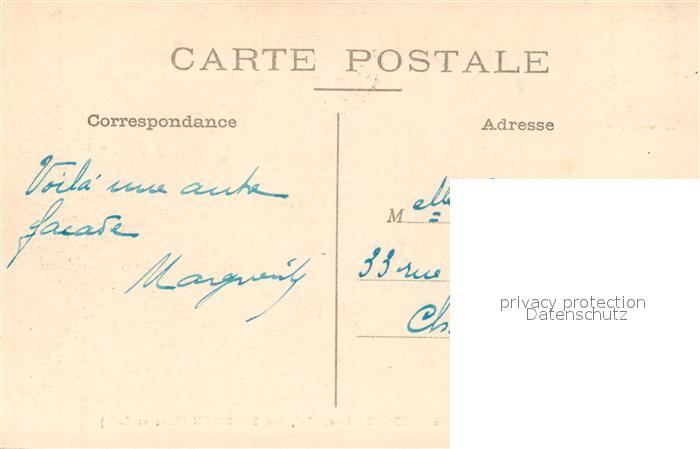 CARTE POSTALE
Correspondance
Adresse
Voilà une autre
façade
Marguerite
Melle
33 rue
privacy protection
Datenschutz